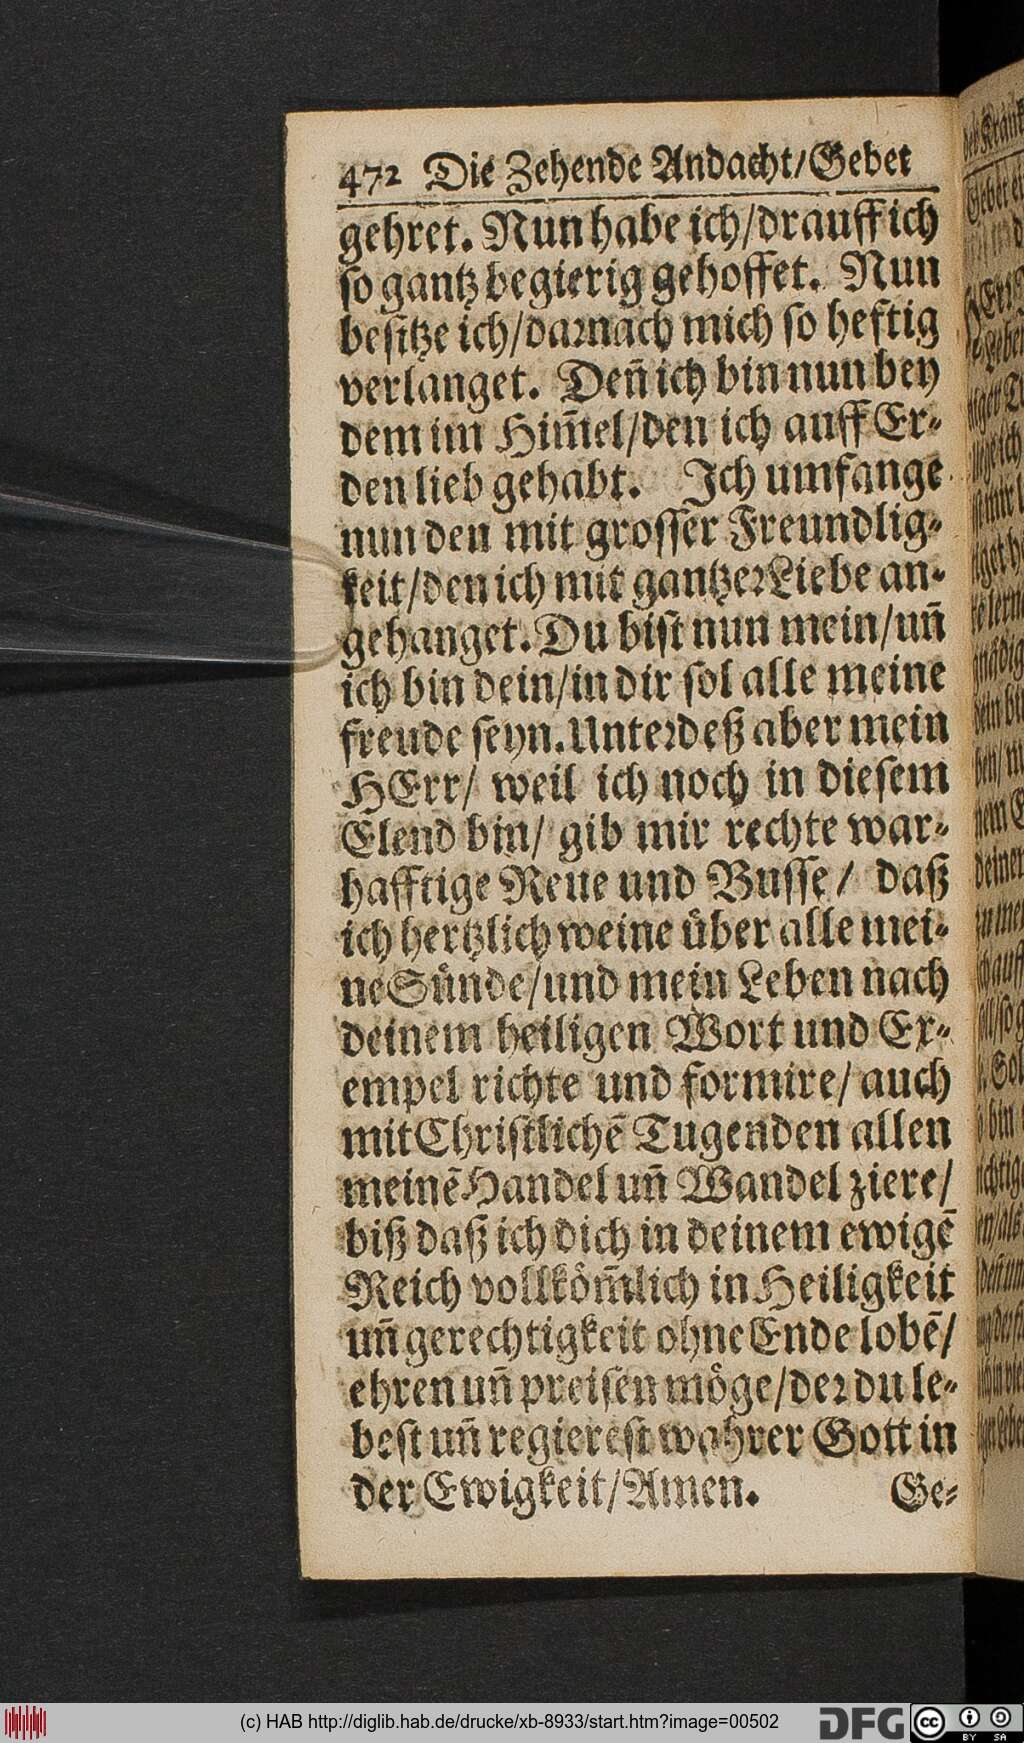 472 Die Zehende Andacht/Gebet
gehret. Nun habe ich/drauff ich
so gantz begierig gehoffet. Nun
besitze ich/darnach mich so heftig
verlanget. Deñ ich bin nun bey
dem im Him̃el/den ich auff Er-
den lieb gehabt. Ich umfange
nun den mit grosser Freundlig-
keit/den ich mit gantzer Liebe an-
gehanget. Du bist nun mein/uñ
ich bin dein/in dir sol alle meine
freude seyn. Unterdeß aber mein
HErr/ weil ich noch in diesem
Elend bin/ gib mir rechte war-
hafftige Reue und Busse/ daß
ich hertzlich weine über alle mei-
ne Sünde/und mein Leben nach
deinem heiligen Wort und Ex-
empel richte und formire/ auch
mit Christlichẽ Tugenden allen
meinẽ Handel uñ Wandel ziere/
biß daß ich dich in deinem ewigẽ
Reich vollköm̃lich in Heiligkeit
uñ gerechtigkeit ohne Ende lobẽ/
ehren uñ preisen möge/der du le-
best uñ regierest wahrer Gott in
der Ewigkeit/Amen. Ge-
(c) HAB http://diglib.hab.de/drucke/xb-8933/start.htm?image=00502
DFG
cc BY SA